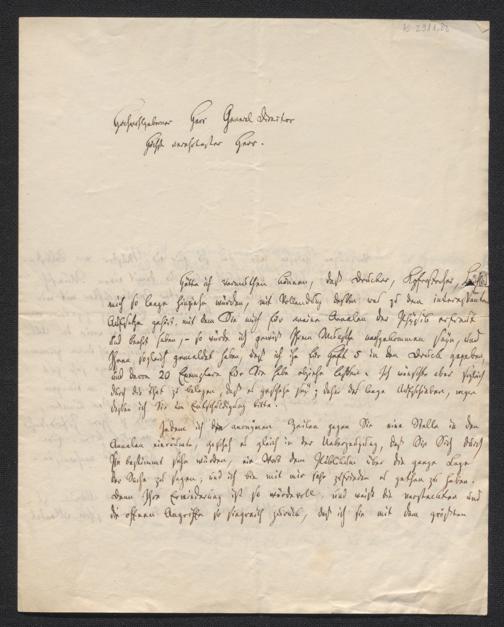 Hochwohlgeborner Herr General Director
Höchst verehrtester Herr.
Hätte ich vermuthen können, daß Drucker, Kupferstecher,
mich so lange hinziehn würden, mit Vollendung dessen was zu dem interessanten
Aufsatze gehört, mit dem Sie mich für meine Annalen der Physik erfreut
und beehrt haben, – so würde ich gewiß Ihrem Wunsche nachgekommen seyn, und
Ihnen sogleich gemeldet haben, daß ich ihn für Heft 5 in den Druck gegeben,
und davon 20 Exemplare für Sie habe abziehn lassen. Ich wünschte aber zugleich
durch die That zu belegen, daß es geschehn sey; daher das lange Aufschieben, wegen
dessen ich Sie um Entschuldigung bitte.
Indem ich den anonymen Zeilen gegen Sie eine Stelle in den
Annalen einräumte, geschah es gleich in der Ueberzeugung, daß Sie Sich durch
sie bestimmt sehn würden, ein Wort dem Publicum über die ganze Lage
der Sache zu sagen, und ich bin mit mir sehr zufrieden es gethan zu haben.
Denn Ihre Erwiederung ist so würdevoll, und weist die versteckten und
die offenen Angriffe so siegreich zurück, daß ich sie mit dem größten